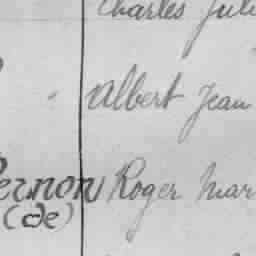 Charles Juli
Albert Jean
ernon Roger Mar
(de)